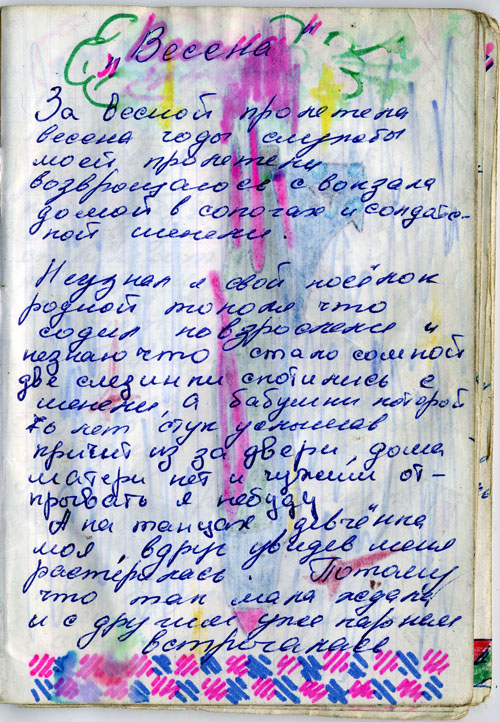 „Весена"
За весной пролетела
весена годы службы
моей пролетели
возврощаюсь с вокзала
домой в сопогах и солдатс-
кой шенели.
Неузнал я свой посёлок
родной тополя что
содил повзрослели и
незнаю что стало сомной
две слезинки спотились с
шенели, А бабушки которой
70 лет стук услышав
кричит из за двери, дома
матери нет и чужим от-
крывать я небуду
А на танцах девчёнка
моя, вдруг увидев меня
растерялась. Потому
что так мала ждала
и с другим уже парнем
встречалась